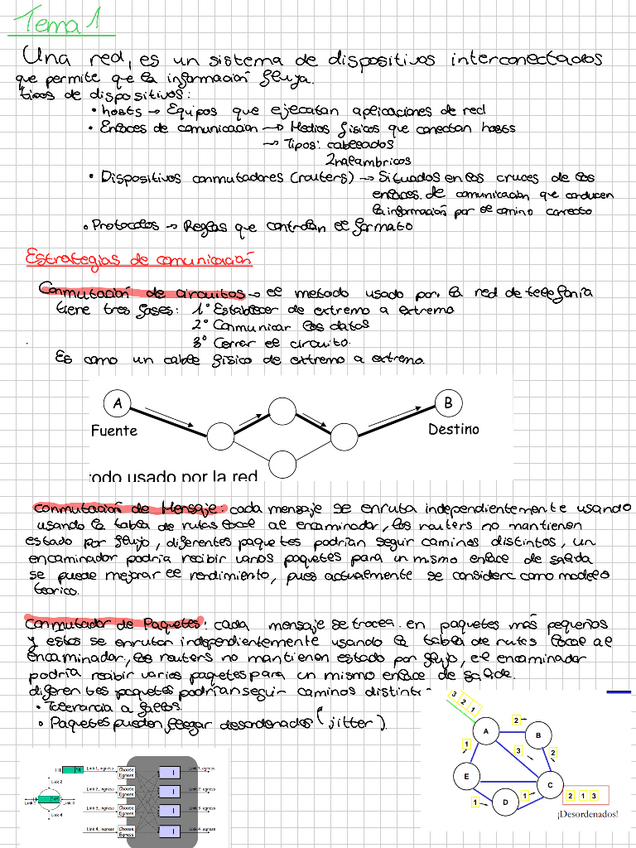 Tema 1
Una red, es un sistema de dispositivos interconectados
que permite que la información fluya.
tipos de dispositivos:
• hosts → Equipos que ejecutan aplicaciones de red
• Enlaces de comunicación → Medios físicos que conectan hosts
→ Tipos: cableados
Inalambricos
• Dispositivos conmutadores (routers) → Situados en los cruces de los
enlaces de comunicación que conducen
la información por el camino correcto
• Protocolos → Reglas que controlan el formato
Estrategias de comunicación
Conmutación de circuitos → el metodo usado por la red de telefonía
tiene tres fases: 1º Establecer de extremo a extremo
2º Comunicar los datos
3º Cerrar el circuito.
Es como un cable físico de extremo a extremo.
A
B
Fuente
Destino
todo usado por la red
Conmutación de Mensaje: cada mensaje se enruta independientemente usando
usando la tabla de rutas local al encaminador, los routers no mantienen
estado por flujo, diferentes paquetes podrían seguir caminos distintos, un
encaminador podría recibir varios paquetes para un mismo enlace de salida
se puede mejorar el rendimiento, pues actualmente se considera como modelo
teorico.
Conmutador de Paquetes: cada mensaje se trocea en paquetes más pequeños
y estos se enrutan independientemente usando la tabla de rutas local al
encaminador, los routers no mantienen estado por flujo, el encaminador
podría recibir varios paquetes para un mismo enlace de salida.
diferentes paquetes podrían seguir caminos distint
• Tolerancia a fallos.
• Paquetes pueden llegar desordenados (jitter).
3 2 1
A
2
B
1
3
2
E
C
2 1 3
1
D
1
¡Desordenados!
Link 1, ingress
Choose Egress
Link 1, egress
Link 2
Link 2, ingress
Choose Egress
Link 2, egress
Link 3, ingress
Choose Egress
Link 3, egress
Link 4
Link 4, ingress
Choose Egress
Link 4, egress